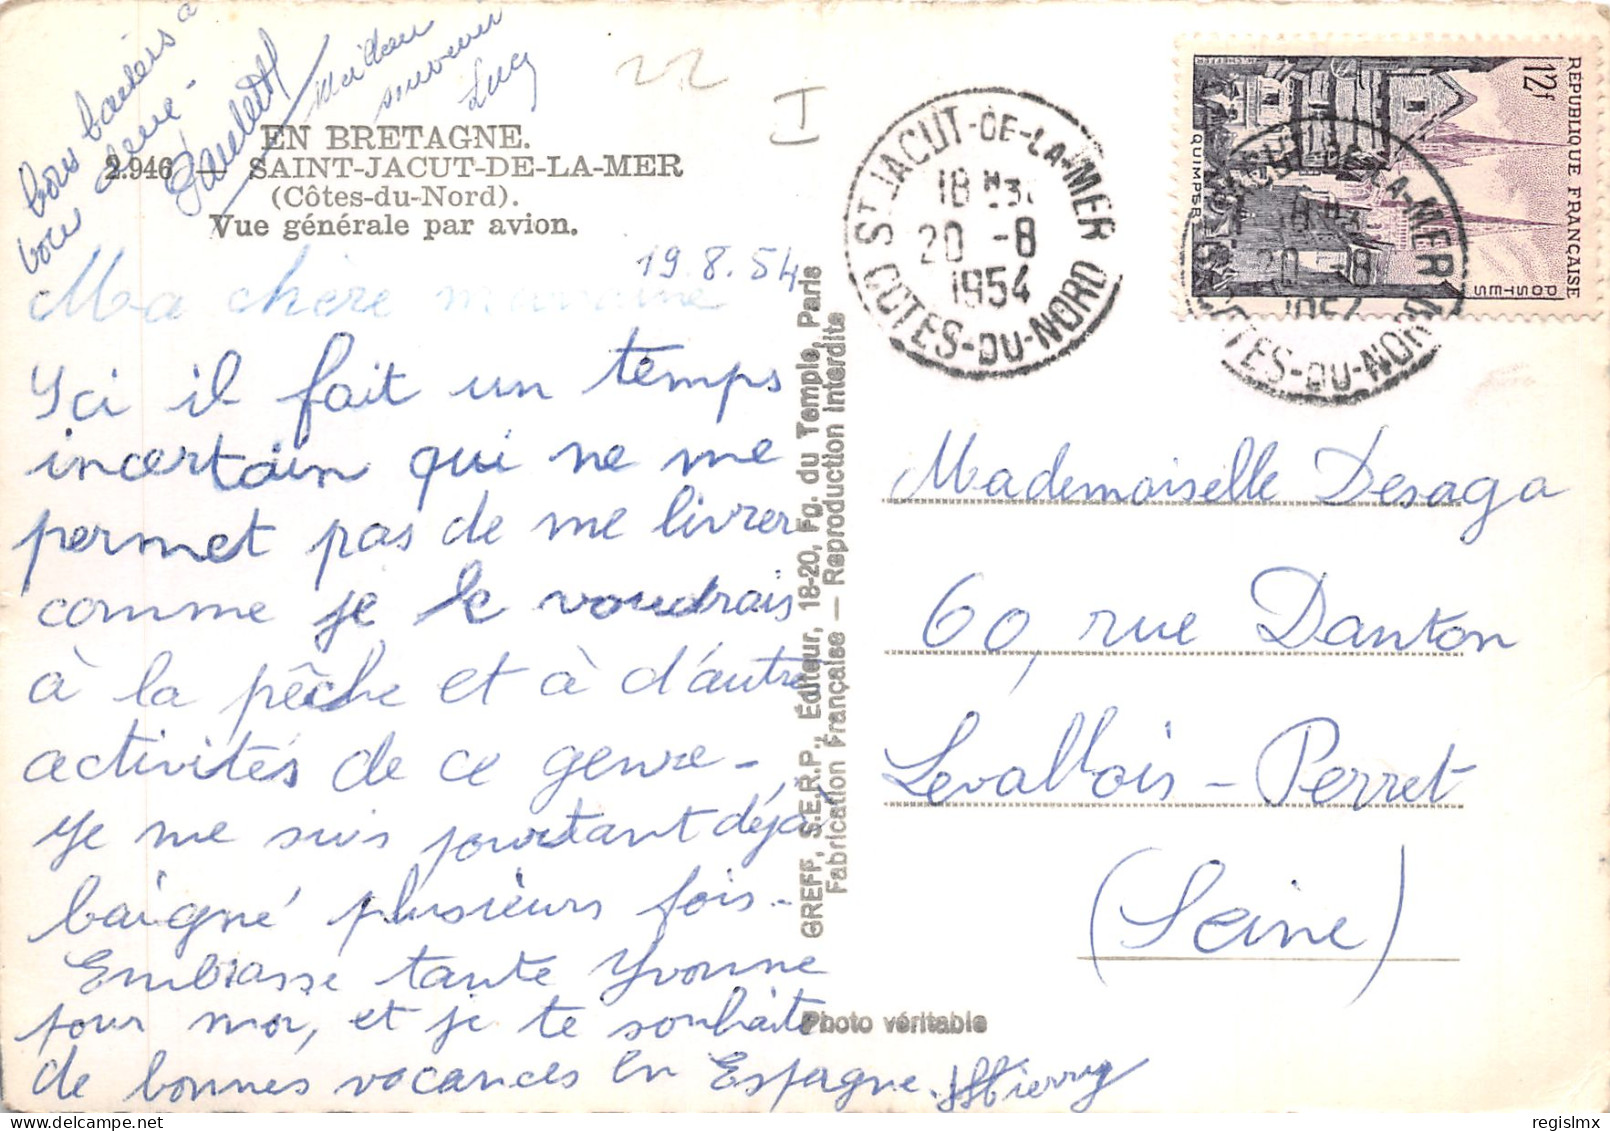 bons baisers à
vous deux
Meilleur
souvenir
Lucy
22
I
EN BRETAGNE.
2.946 — SAINT-JACUT-DE-LA-MER
(Côtes-du-Nord).
Vue générale par avion.
19.8.54
Ma chère marraine
Ici il fait un temps
incertain qui ne me
permet pas de me livrer
comme je le voudrais
à la pêche et à d'autres
activités de ce genre -
Je me suis pourtant déjà
baigné plusieurs fois -
Embrasse tante Yvonne
pour moi, et je te souhaite
de bonnes vacances en Espagne. Thierry
GREFF, S.E.R.P., Éditeur, 18-20, Fg. du Temple, Paris
Fabrication Française — Reproduction Interdite
Photo véritable
ST JACUT-DE-LA-MER
18H30
20 -8
1954
COTES-DU-NORD
RÉPUBLIQUE FRANÇAISE
12f
POSTES
QUIMPER
-LA-MER
20 -8
COTES-DU-NORD
Mademoiselle Desaga
60, rue Danton
Levallois - Perret
(Seine)
regislmx